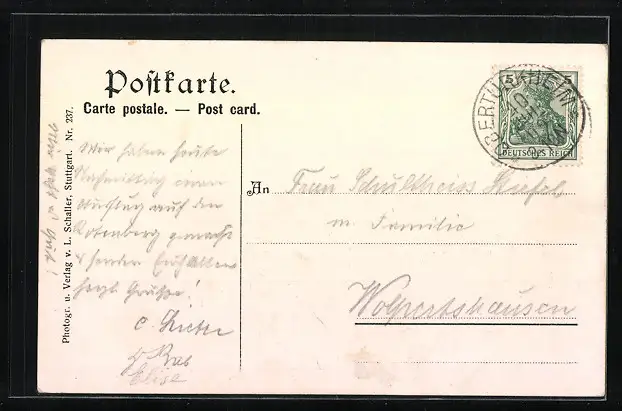 Postkarte.
Carte postale. — Post card.
Photogr. u. Verlag v. L. Schaller, Stuttgart. Nr. 237.
5 5
DEUTSCHES REICH
Wir haben heute
Nachmittag einen
Ausflug auf den
Rotenberg gemacht
senden Euch Allen
herzl Grüße!
Elise
An Frau Schultheiss
m. Familie
Wolpertshausen